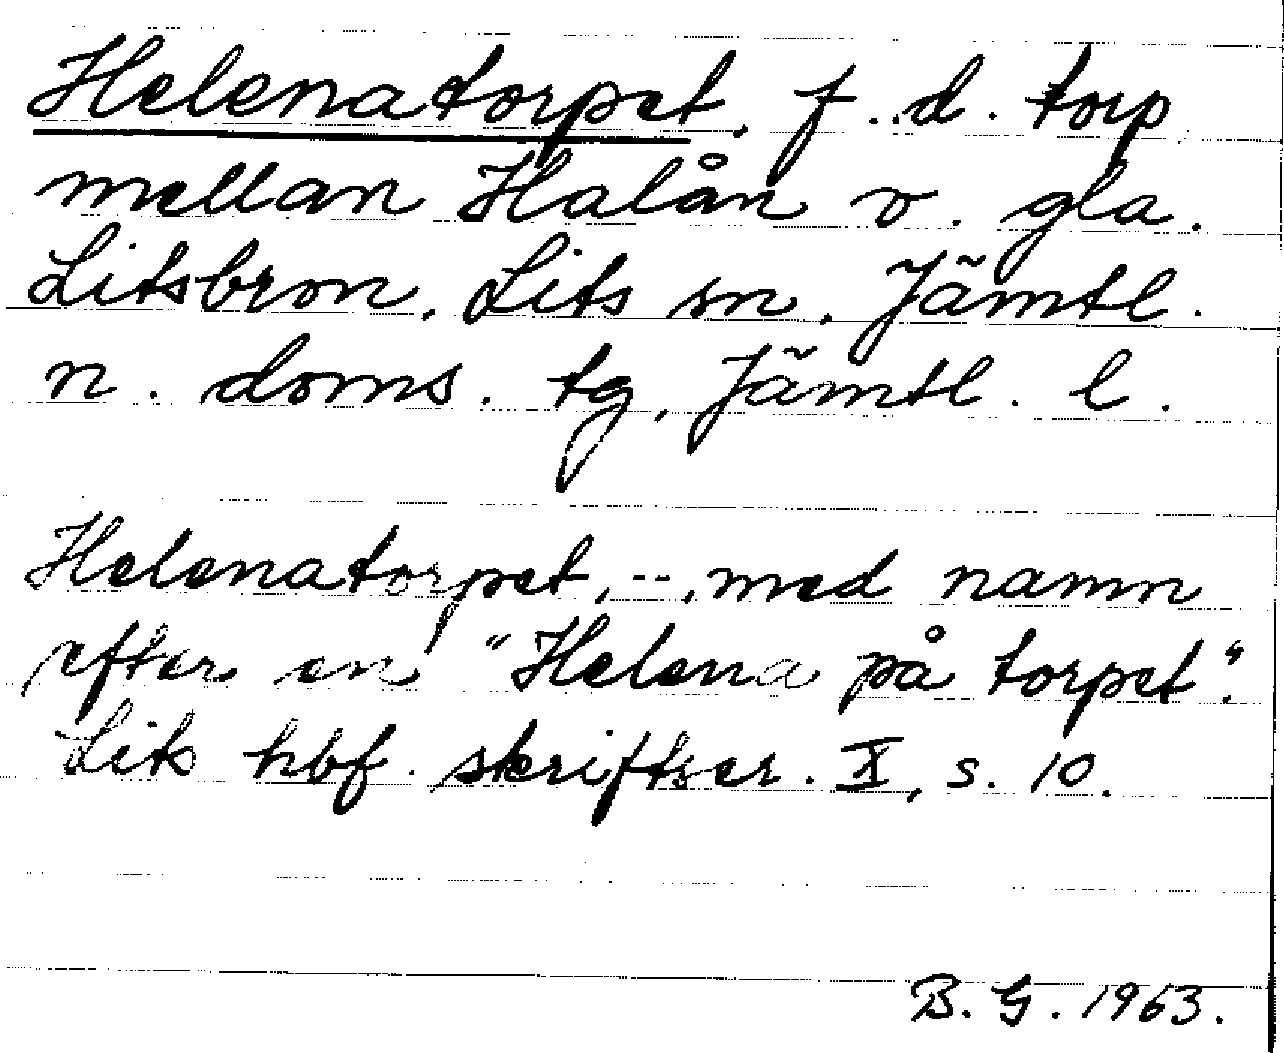 Helenatorpet, f.d. torp
mellan Halån o. gla.
Litsbron, Lits sn, Jämtl.
n. doms. tg, Jämtl. l.
Helenatorpet, --, med namn
efter en "Helena på torpet".
Lits hbf. skriftser. X, s. 10.
B. G. 1963.